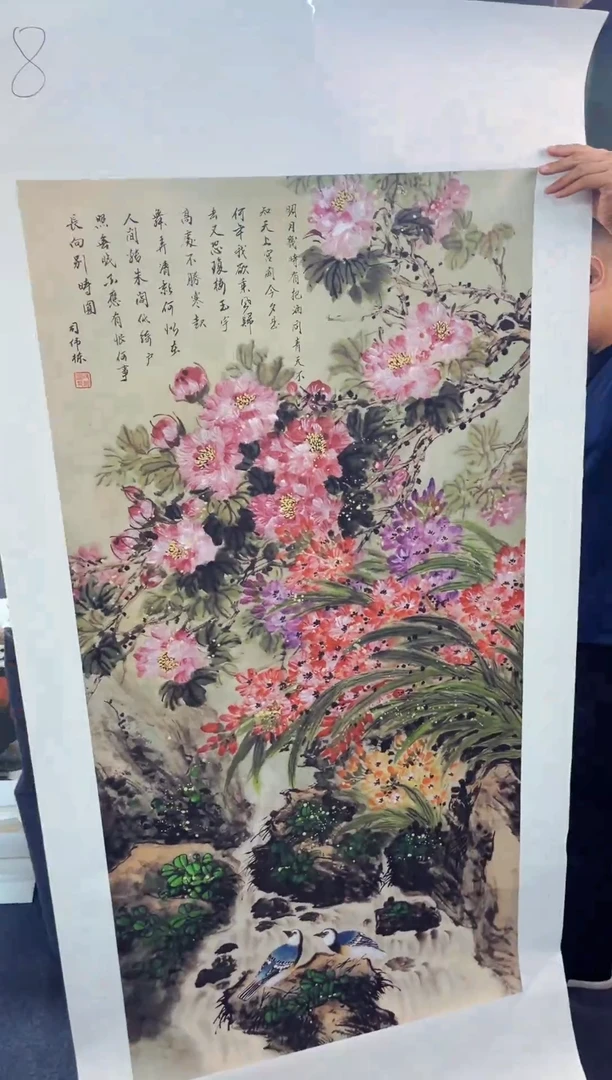 8
明月幾時有把酒問青天不
知天上宮闕今夕是
何年我欲乘風歸
去又恐瓊樓玉宇
高處不勝寒起
舞弄清影何似在
人間轉朱閣低綺戶
照無眠不應有恨何事
長向別時圓